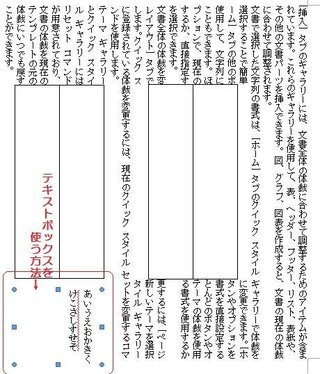 ［挿入］タブのギャラリーには、文書全体の体裁に合わせて調整するためのアイテムが含ま
れています。これらのギャラリーを使用して、表、ヘッダー、フッター、リスト、表紙や
その他の文書パーツを挿入できます。図、グラフ、図表を作成すると、文書の現在の体裁
に合わせて調整されます。
文書で選択した文字列の書式は、［ホーム］タブのクイック スタイル ギャラリーで体裁を
選択することで簡単に変更できます。［ホ
ーム］タブの他のボタンやオプションを
使用して、文字列に書式を直接設定する
こともできます。ほとんどのボタンやオ
プションで、現在のテーマの体裁を使用
するか、直接指定する書式を使用するか
を選択できます。
文書全体の体裁を変更するには、［ページ
レイアウト］タブで新しいテーマを選択
します。クイック スタイル ギャラリー
に登録されている体裁を変更するには、現在のクイック スタイル セットを変更するコマ
ンドを使用します。
テーマ ギャラリー
とクイック スタイ
ル ギャラリーには
リセット コマンド
が用意されており、
文書の体裁を現在の
テンプレートの元の
体裁にいつでも戻す
ことができます。
テキストボックスを
使う方法→
あいうえおかきく、
けこさしすせそ